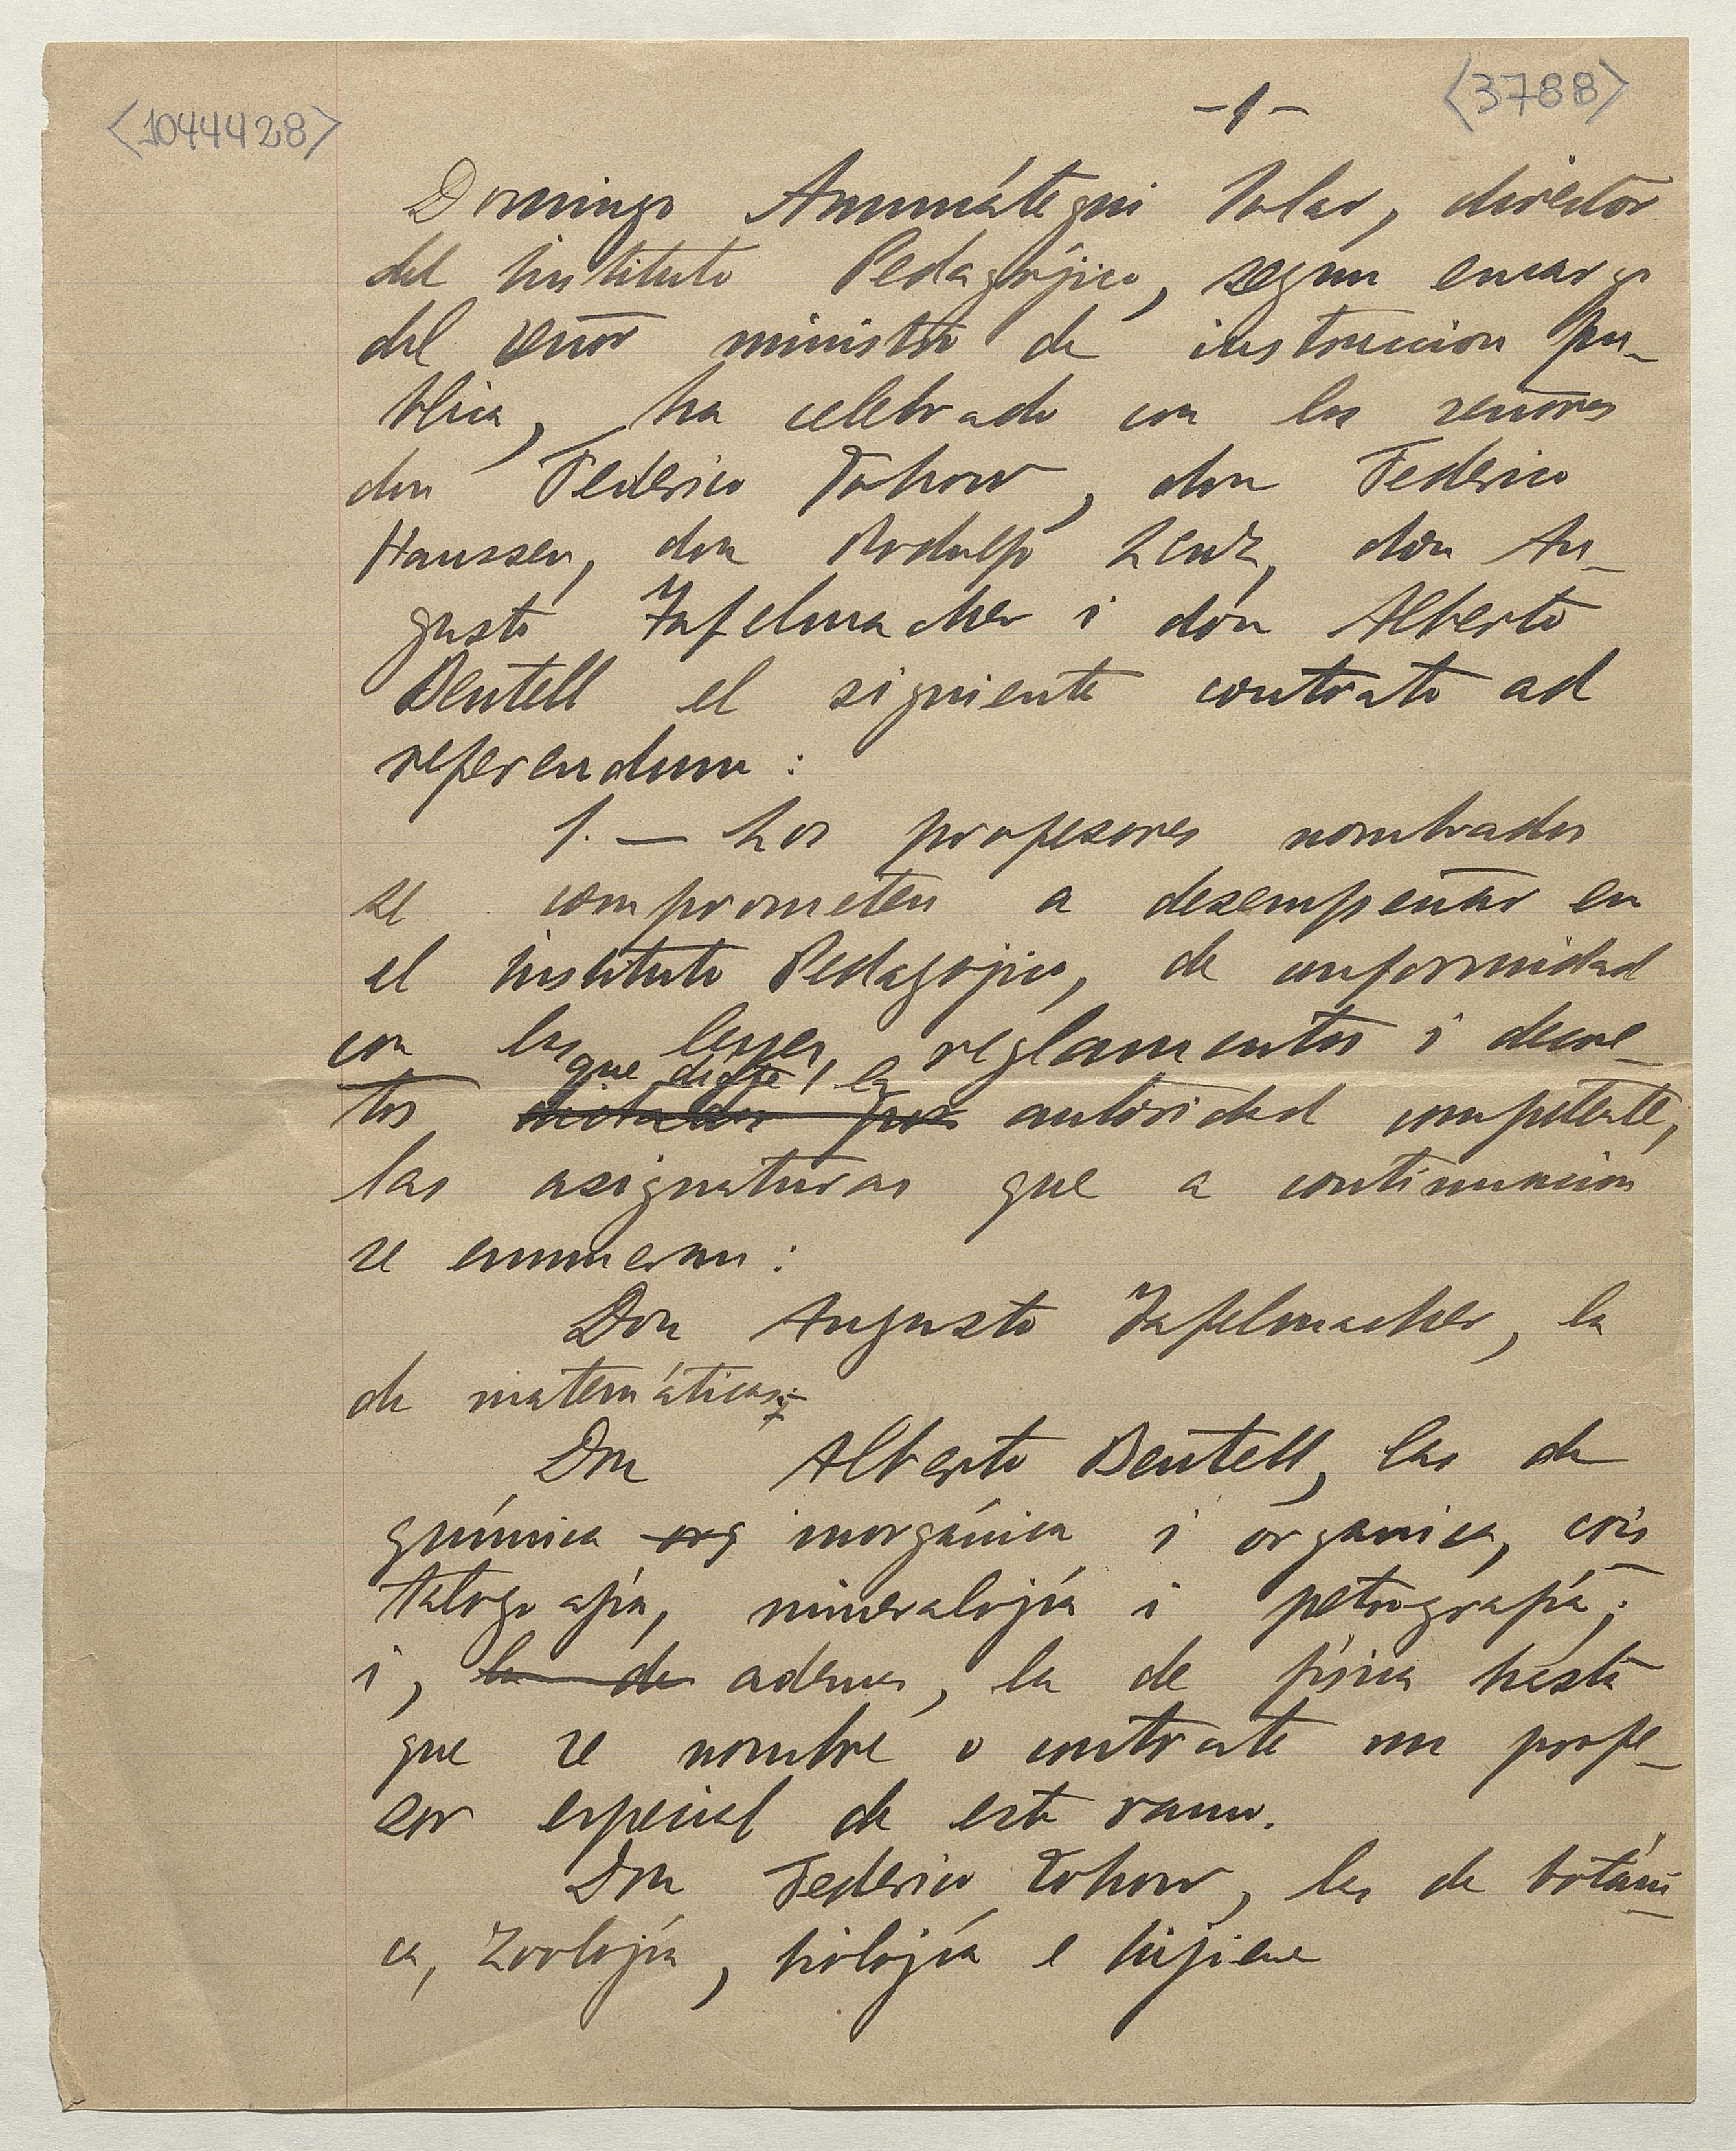 <1044428>
-1-
<3788>
Domingo Amunátegui Solar, director
del Instituto Pedagójico, segun encargo
del señor ministro de instruccion pú-
blica, ha celebrado con los señores
don Federico Johow, don Federico
Hanssen, don Rodolfo Lenz, don Au-
gusto Tafelmacher i don Alberto
Beutell el siguiente contrato ad
referendum:
1. — Los profesores nombrados
se comprometen a desempeñar en
el Instituto Pedagójico, de conformidad
con las leyes, reglamentos i decre-
que dicte la
tos dictados por autoridad competente,
las asignaturas que a continuacion
se enumeran:
Don Augusto Tafelmacher, la
de matemáticas;
Don Alberto Beutell, las de
química org inorgánica i orgánica, cris
talografía, mineralojía i petrografía;
i, la de ademas, la de física hasta
que se nombre o contrate un profe-
sor especial de este ramo.
Don Federico Johow, las de botáni
ca, zoolojía, biolojía e hijiene